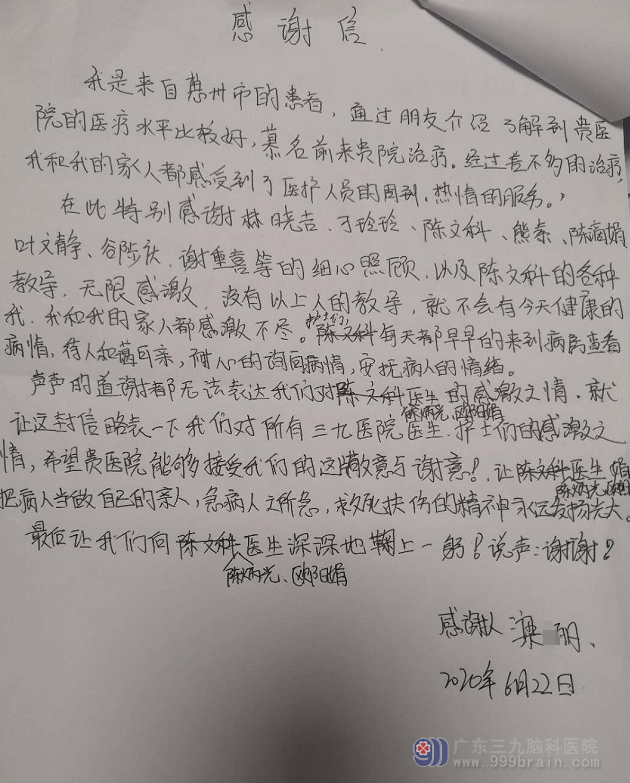 感谢信
我是来自惠州市的患者，通过朋友介绍了解到贵医
院的医疗水平比较好，慕名前来贵院治疗。经过差不多的治疗，
我和我的家人都感受到了医护人员的周到，热情的服务。
在此特别感谢林晓吉、丁玲玲、陈文科、熊、陈娟
叶文静、谷、谢重喜等的细心照顾，以及陈文科的各种
教导，无限感激，没有以上人的教导，就不会有今天健康的
我，我和我的家人都感激不尽。护士们每天都早早的来到病房查看
病情，待人和蔼可亲，耐心的询问病情，安抚病人的情绪。
声声的道谢都无法表达我们对陈文科医生的感激之情，就
陈炳光、欧阳娟
让这封信略表一下我们对所有三九医院医生、护士们的感激之
情，希望贵医院能够接受我们的这敬意与谢意！让陈文科医生
陈炳光、欧阳娟
把病人当做自己的亲人，急病人之所急，救死扶伤的精神永远发扬光大。
最后让我们向陈文科医生深深地鞠上一躬！说声：谢谢？
陈炳光、欧阳娟
感谢人 梁 丽、
2020年6月22日
广东三九脑科医院
www.999brain.com